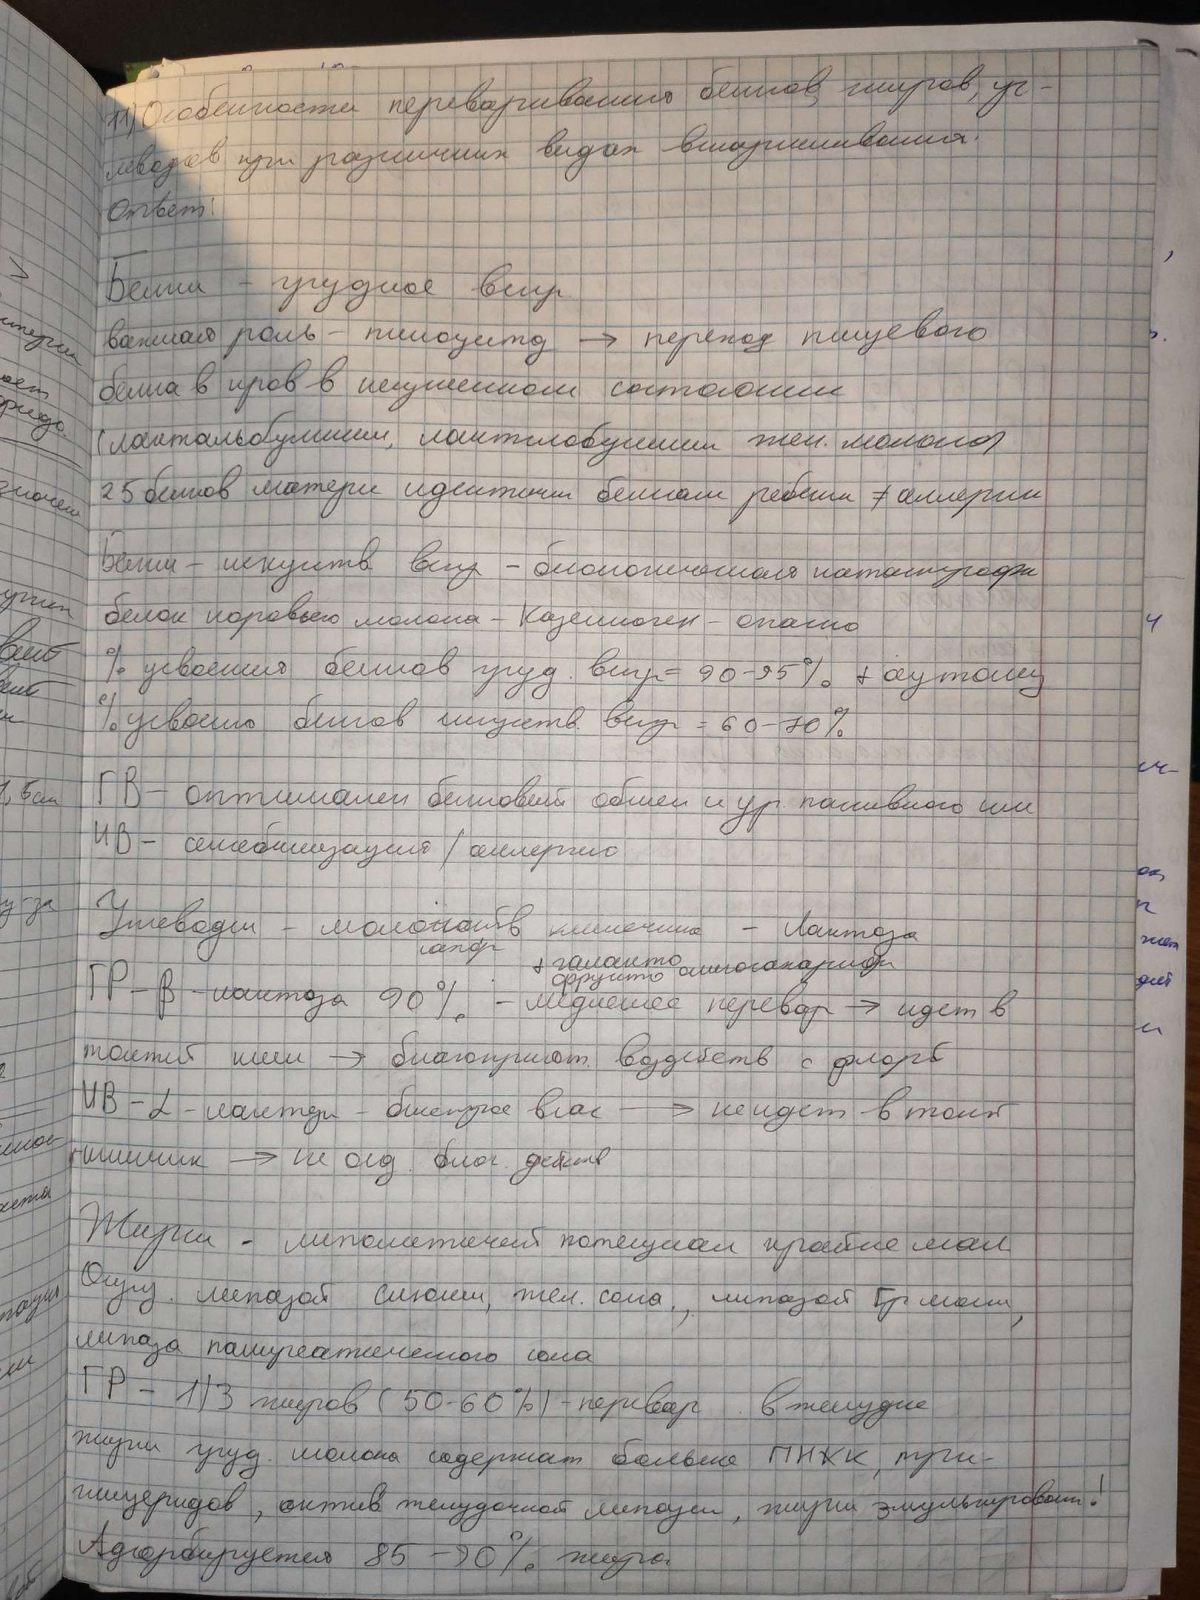 11) Особенности переваривания белков, жиров, уг-
леводов при различных видах вскармливания.
Ответ:
Белки - грудное вскр
важная роль - пиноцитоз → переход пищевого
белка в кровь в неизменном состоянии
(лактальбумины, лактглобулины жен. молока)
25 белков матери идентичны белкам ребенк ≠ аллергии
Белки - искусств вскр - биологическая катастрофа
белок коровьего молока - Казеиноген - опасно
% усвоения белков груд. вскр = 90-95% + аутолиз
% усвоения белков искуств. вскр = 60-70%
ГВ - оптимален белковый обмен и ур. пассивного им
ИВ - сенсибилизация / аллергию
Углеводы - молоко кишечника - Лактоза
+ галакто
фрукто олигосахариды
ГР - β - лактоза 90% - медленее перевар → идет в
толстый киш → благоприят. воздейств с флорой
ИВ - L - лактоза - быстрое всас → не идет в толст
кишечник → не ока. благ. действ
Жиры - липолитичекий потенциал крайне мал
Осущ. липазой слюны, жел. сока, липазой Гр молок,
липаза панкреатического сока
ГР - 1/3 жиров (50-60%) - перевар в желудке
жиры груд. молока содержат больше ПНЖК, три-
глицеридов, актив желудочной липазы, жиры эмульгирован!
Адсорбируется 85-90% жира